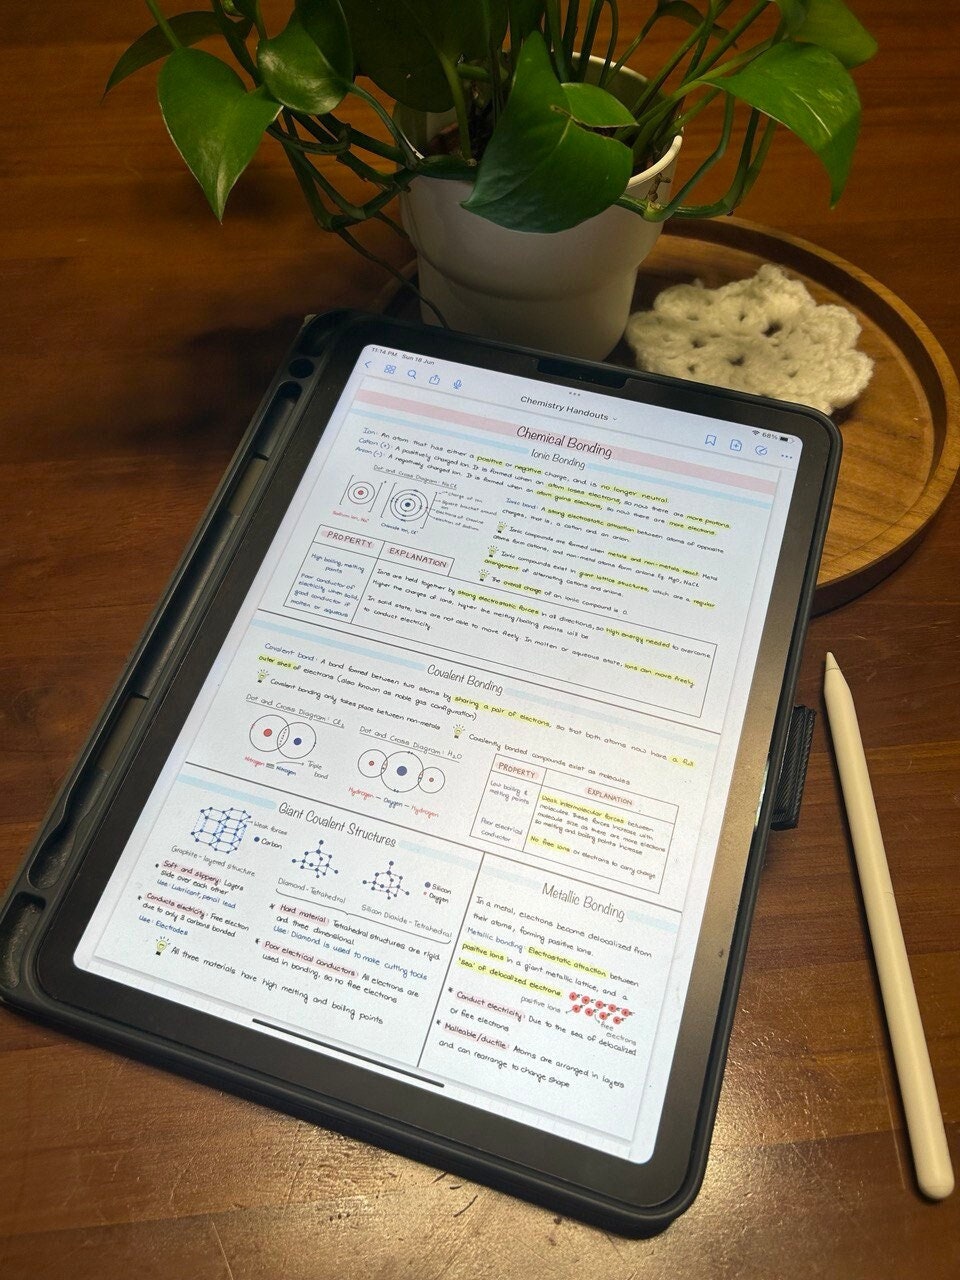 11:14 PM Sun 18 Jun
68%
Chemistry Handouts
Chemical Bonding
Ionic Bonding
Ion: An atom that has either a positive or negative charge, and is no longer neutral.
Cation (+): A positively charged ion. It is formed when an atom loses electrons, so now there are more protons
Anion (-): A negatively charged ion. It is formed when an atom gains electrons, so now there are more electrons
Dot and Cross Diagram: NaCl
charge of ion
square bracket around ion
electrons of chlorine
electron of sodium
Sodium ion, Na⁺
Chloride ion, Cl⁻
Ionic bond: A strong electrostatic attraction between atoms of opposite
charges, that is, a cation and an anion.
Ionic compounds are formed when metals and non-metals react. Metal
atoms form cations, and non-metal atoms form anions
Ionic compounds exist in giant lattice structures, which are a regular
arrangement of alternating cations and anions.
The overall charge of an ionic compound is 0.
PROPERTY
EXPLANATION
High boiling, melting
points
Ions are held together by strong electrostatic forces in all directions, so high energy needed to overcome
Higher the charges of ions, higher the melting/boiling points will be
Poor conductor of
electricity when solid,
good conductor if
molten or aqueous
In solid state, ions are not able to move freely. In molten or aqueous state, ions can move freely
to conduct electricity
Covalent Bonding
Covalent bond: A bond formed between two atoms by sharing a pair of electrons, so that both atoms now have a full
outer shell of electrons (also known as noble gas configuration)
Covalent bonding only takes place between non-metals
Covalently bonded compounds exist as molecules
Dot and Cross Diagram:
Nitrogen ≡ Nitrogen
Triple
bond
Dot and Cross Diagram: H₂O
Hydrogen – Oxygen – Hydrogen
PROPERTY
EXPLANATION
Low boiling &
melting points
Weak intermolecular forces between
molecules. These forces increase with
molecule size as there are more electrons
so melting and boiling points increase
Poor electrical
conductor
No free ions or electrons to carry charge
Giant Covalent Structures
Weak forces
Carbon
Graphite - layered structure
Diamond - Tetrahedral
Silicon
Oxygen
Silicon Dioxide - Tetrahedral
* Soft and slippery: Layers
slide over each other
Use: Lubricant, pencil lead
* Conducts electricity: Free electron
due to only 3 carbons bonded
Use: Electrodes
* Hard material: Tetrahedral structures are rigid
and three dimensional
Use: Diamond is used to make cutting tools
* Poor electrical conductors: All electrons are
used in bonding, so no free electrons
All three materials have high melting and boiling points
Metallic Bonding
In a metal, electrons become delocalized from
their atoms, forming positive ions.
Metallic bonding: Electrostatic attraction between
positive ions in a giant metallic lattice, and a
'sea' of delocalized electrons.
positive ions
free
electrons
* Conduct electricity: Due to the sea of delocalized
or free electrons
* Malleable/ductile: Atoms are arranged in layers
and can rearrange to change shape